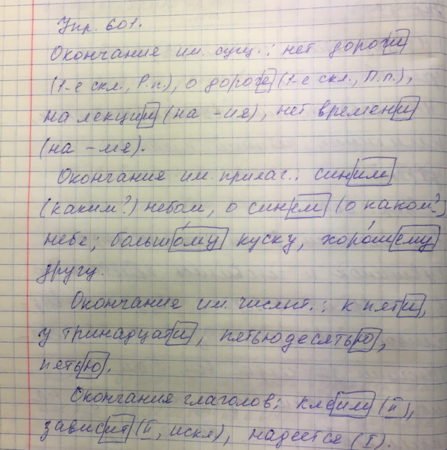 Упр. 601.
Окончание им. сущ.: нет дороги
(1-е скл., Р.п.), о дороге (1-е скл., П.п.),
на лекции (на -ия), нет времени
(на -мя).
Окончание им. прилаг.: синим
(каким?) небом, о синем (о каком?
небе; большому куску, хорошему
другу.
Окончание им. числит.: к пяти,
у тринадцати, пятьюдесятью,
пятью.
Окончания глаголов: клеим (II),
зависит (II, искл), надеется (I).